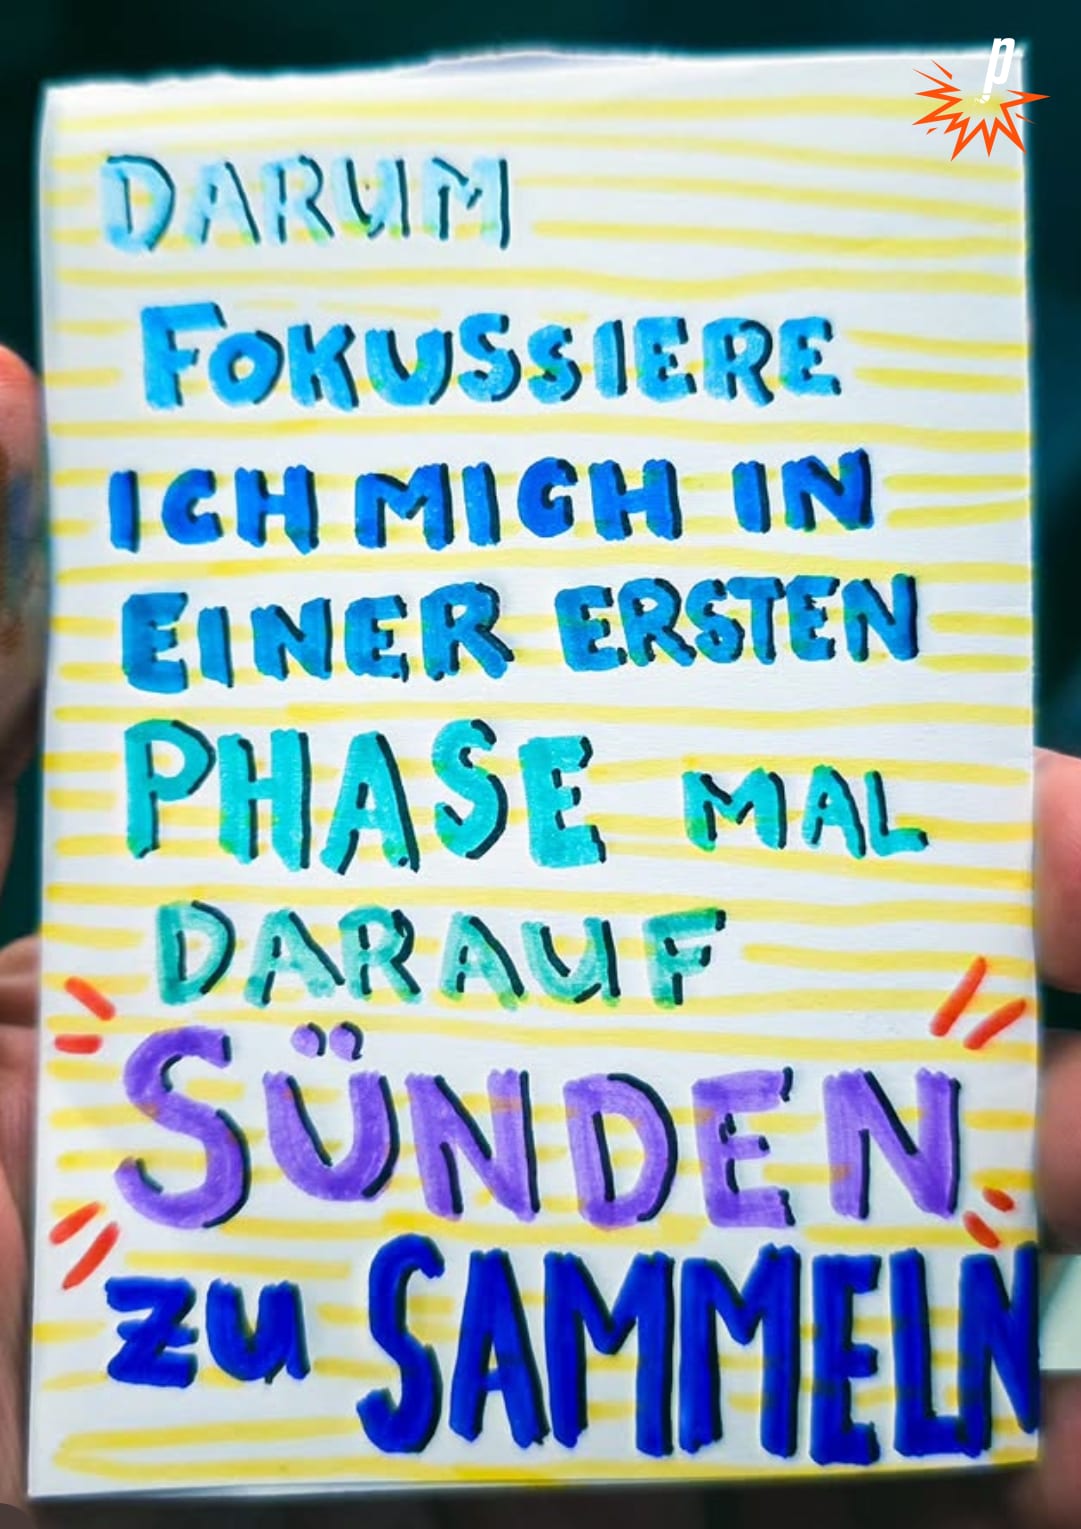 p
DARUM
FOKUSSIERE
ICH MICH IN
EINER ERSTEN
PHASE MAL
DARAUF
SÜNDEN
zu SAMMELN